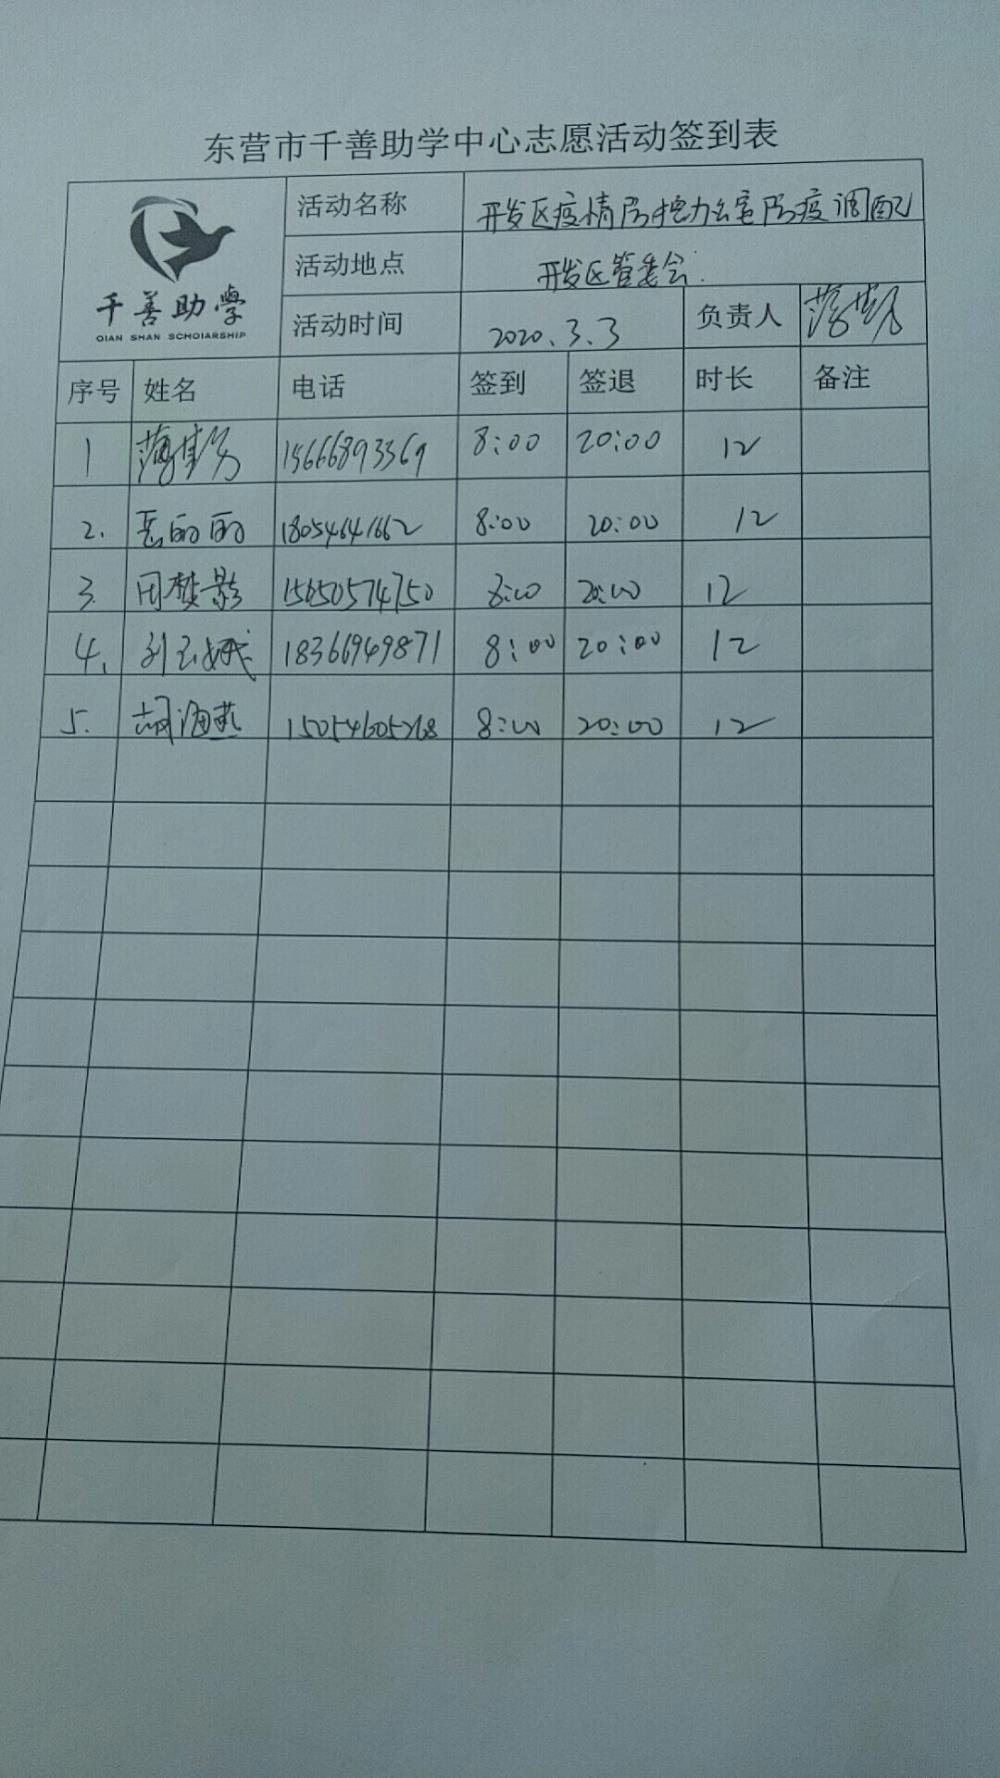 东营市千善助学中心志愿活动签到表
千善助學
QIAN SHAN SCHOIARSHIP
活动名称 开发区疫情防控办公室防疫调配
活动地点 开发区管委会
活动时间 2020.3.3 负责人
序号 姓名 电话 签到 签退 时长 备注
1 15666893369 8:00 20:00 12
2. 18054641662 8:00 20:00 12
3. 周梦影 15650574750 8:00 20:00 12
4. 18366949871 8:00 20:00 12
5. 胡海燕 15054605268 8:00 20:00 12